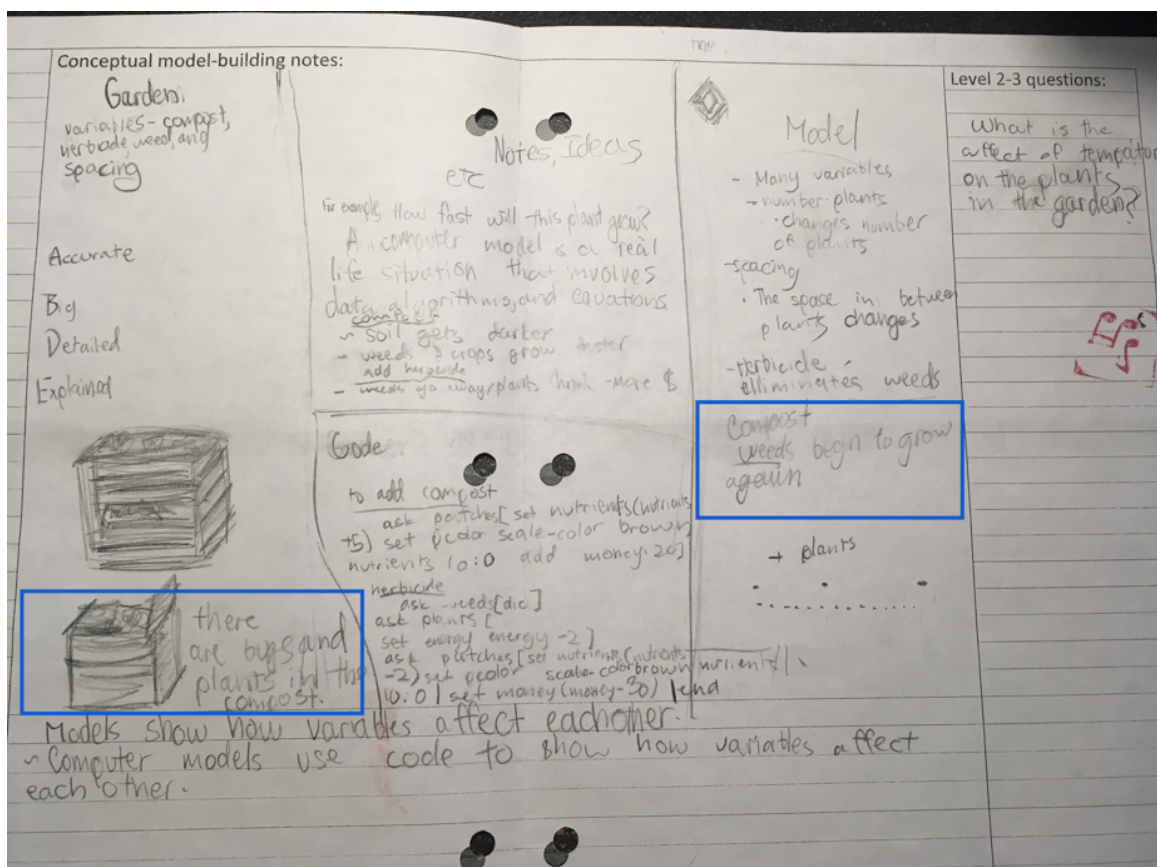 Conceptual model-building notes:
Garden:
variables - compost,
herbicide, weed, and
spacing
Accurate
Big
Detailed
Explained
there
are bugs and
plants in the
compost.
Notes, Ideas
etc
For example How fast will this plant grow?
A computer model is a real
life situation that involves
data, algorithms, and equations
compost
~ soil gets darker
- weeds & crops grow faster
add
- weeds go away/plants - more $
Code
to add compost
ask patches[ set nutrients(nutrients
+5) set pcolor scale-color brown
nutrients 10:0 add money:20]
herbicide
ask weeds[die]
ask plants [
set energy energy -2]
ask patches[set nutrients(nutrients
-2) set pcolor scale-color brown nutrients
10:0] set money(money-30) end
Model
- Many variables
- number-plants
· changes number
of plants
-spacing
· The space in between
plants changes
-Herbicide
elliminates weeds
Compost
weeds begin to grow
again
+ plants
Level 2-3 questions:
What is the
affect of
on the plants
in the garden?
Models show how variables affect eachother.
~ Computer models use code to show how variables affect
each other.